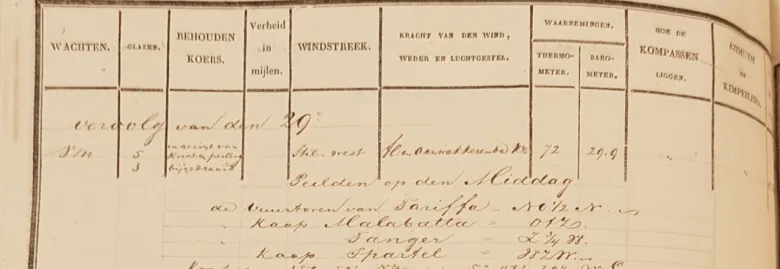 WACHTEN. GLAZEN. BEHOUDEN KOERS. Verheid in mijlen. WINDSTREEK. KRACHT VAN DEN WIND, WEDER EN LUCHTGESTEL. WAARNEMINGEN. THERMO-METER. BARO-METER. HOE DE KOMPASSEN LIGGEN. AZIMUTH EN KIMPEILING.
vervolg van den 29
5 Stil. west 72 29.9
3 bijgedraaid
Peilden op den Middag
de vuurtoren van Tariffa - N O ½ N.
" Kaap Malabatta = OtZ.
" Tanger " Z ¾ W.
" Kaap Spartel = WZW.